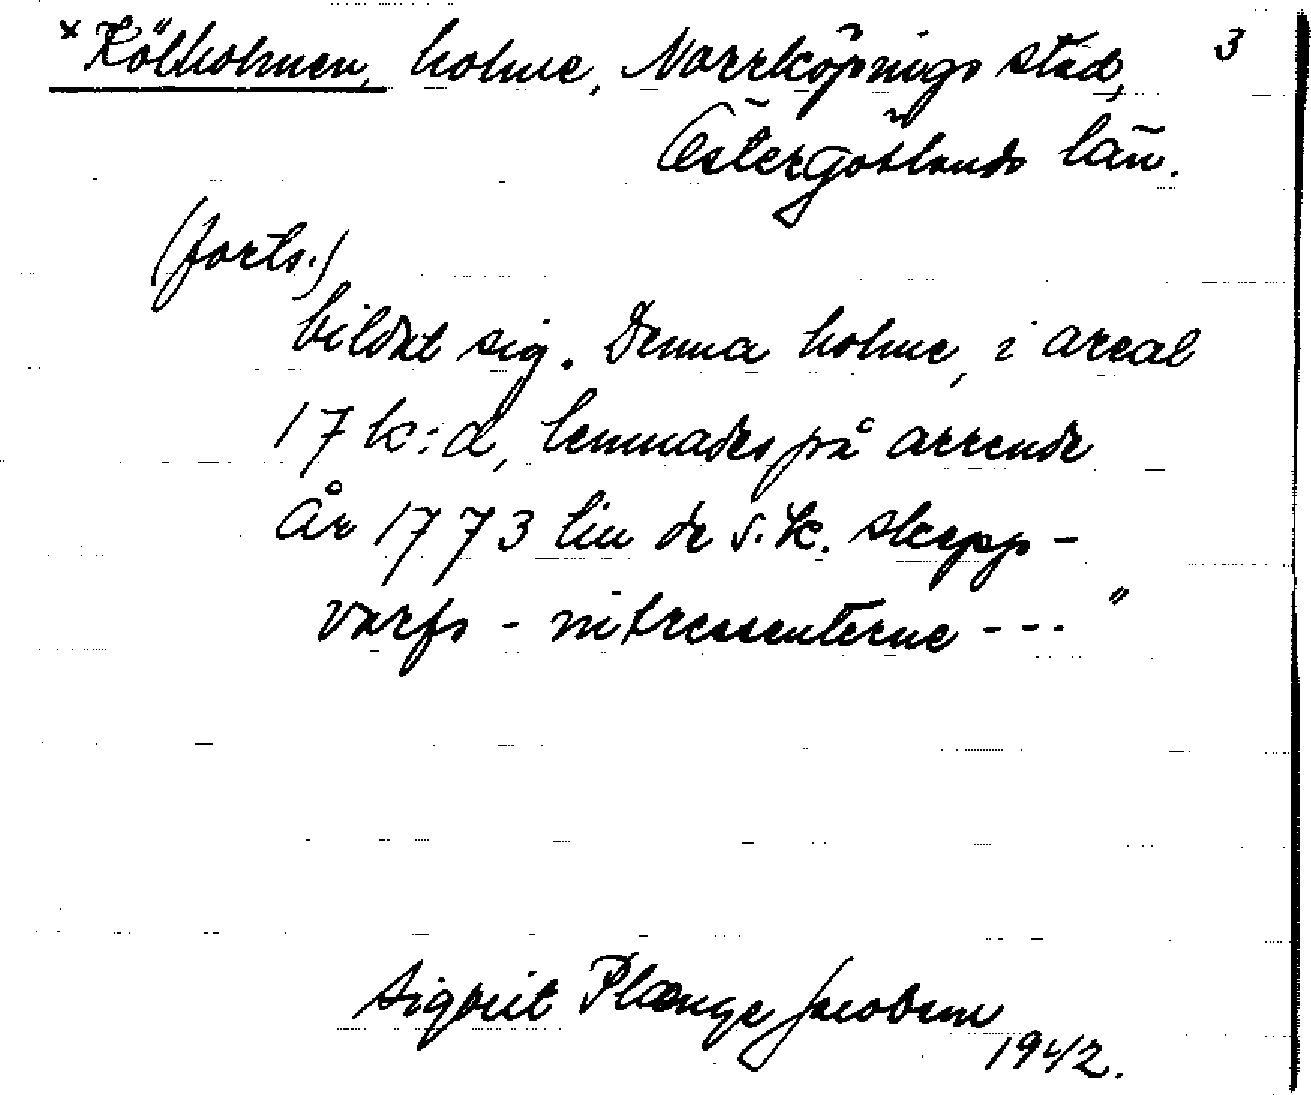 *Kölholmen, holme, Norrköpings stad, 3
Östergötlands län.
(forts.)
bildat sig. Denna holme, i areal
17 k:d, lemnades på arrende
år 1773 till de s.k. skepp-
varfs-intressenterne ---"
Sigurd Plænge Jacobson
1942.